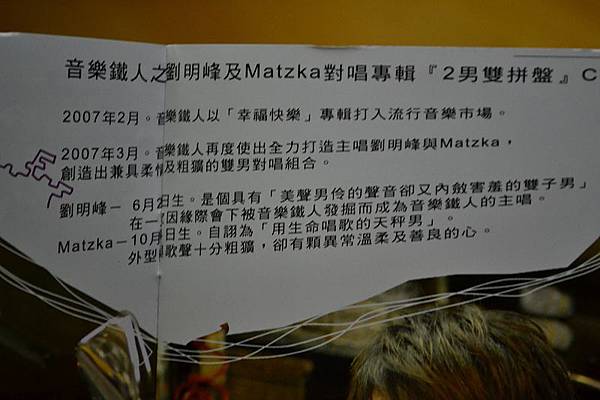 音樂鐵人之劉明峰及Matzka對唱專輯『2男雙拼盤』C
2007年2月。音樂鐵人以「幸福快樂」專輯打入流行音樂市場。
2007年3月。音樂鐵人再度使出全力打造主唱劉明峰與Matzka，
創造出兼具柔情及粗獷的雙男對唱組合。
劉明峰－ 6月2日生。是個具有「美聲男伶的聲音卻又內斂害羞的雙子男」
在一次因緣際會下被音樂鐵人發掘而成為音樂鐵人的主唱。
Matzka－10月日生。自詡為「用生命唱歌的天秤男」。
外型歌聲十分粗獷，卻有顆異常溫柔及善良的心。